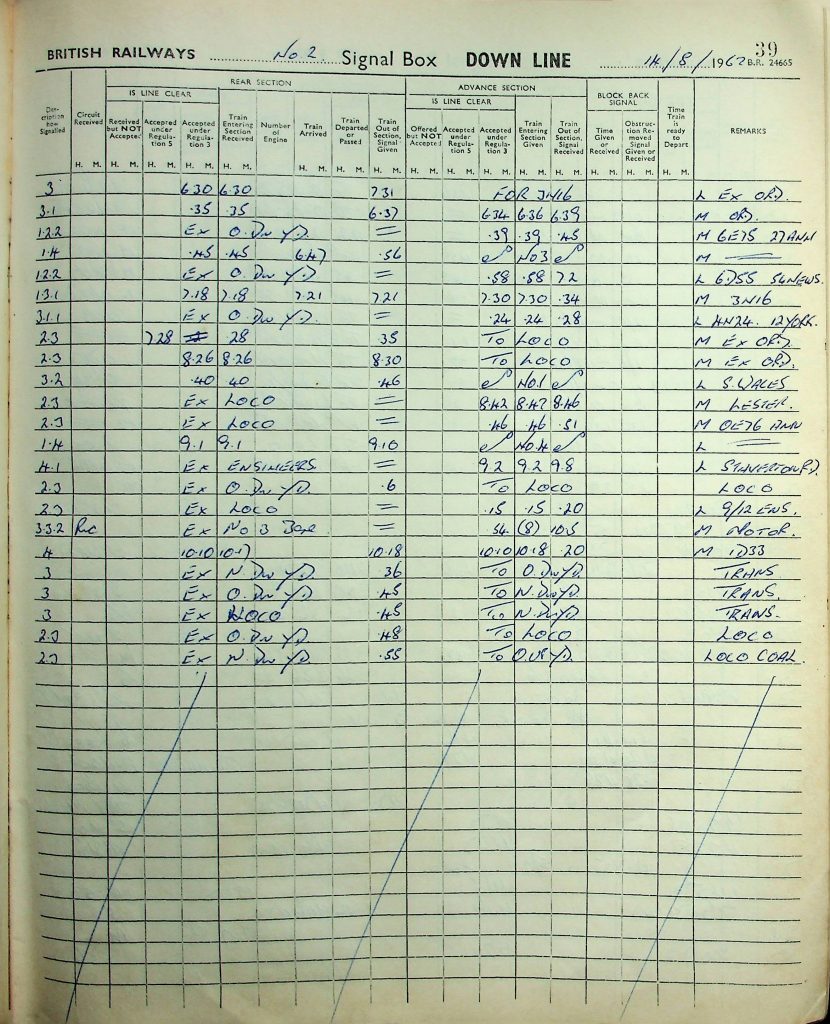 39
BRITISH RAILWAYS No 2 Signal Box DOWN LINE 14/8/1962 B.R. 24665
REAR SECTION ADVANCE SECTION
IS LINE CLEAR IS LINE CLEAR BLOCK BACK SIGNAL
Description how Signalled Circuit Received Received but NOT Accepted Accepted under Regulation 5 Accepted under Regulation 3 Train Entering Section Received Number of Engine Train Arrived Train Departed or Passed Train Out of Section, Signal Given Offered but NOT Accepted Accepted under Regulation 5 Accepted under Regulation 3 Train Entering Section Given Train Out of Section, Signal Received Time Given or Received Obstruction Removed Signal Given or Received Time Train is ready to Depart REMARKS
H. M. H. M. H. M. H. M. H. M. H. M. H. M. H. M. H. M. H. M. H. M. H. M. H. M. H. M. H. M. H. M.
3 6.30 6.30 7.31 FOR 3N16 L EX ORD.
3.1 .35 .35 6.37 6.34 6.36 6.39 M ORD.
1.2.2 Ex O. Dn YD. = .39 .39 .45 M 6E75 27 ANN
1.4 .45 .45 6.47 .56 No 3 M
1.2.2 Ex O. Dn YD = .58 .58 7.2 L 6D55 NEWS.
1.3.1 7.18 7.18 7.21 7.21 7.30 7.30 .34 M 3N16
3.1.1 Ex O. Dn YD. = .24 .24 .28 L 12 YORK.
2.3 7.28 .28 .35 To LOCO M Ex ORD.
2.3 8.26 8.26 8.30 To LOCO M Ex ORD.
3.2 .40 .40 .46 No 1 L S. WALES
2.3 Ex LOCO = 8.42 8.47 8.46 M LESTER.
2.3 Ex LOCO = .46 .46 .51 M OE76 ANN
1.4 9.1 9.1 9.10 No. 4 L
4.1 Ex ENGINEERS = 9.2 9.2 9.8 L STAVERTON RD.
2.3 Ex O. Dn YD. .6 To LOCO LOCO
2.3 Ex LOCO = .15 .15 .20 L 9/12 ENS.
3.3.2 Rec Ex No 3 Box = 54 (8) 10.5 M MOTOR.
4 10.10 10.17 10.18 10.10 10.18 .20 M 1D33
3 Ex N. Dn YD. .36 To O. Dn YD. TRANS
3 Ex O. Dn YD. .45 To N. Dn YD. TRANS.
3 Ex LOCO .45 To N. Dn YD. TRANS.
2.3 Ex O. Dn YD. .48 To LOCO LOCO
2.3 Ex N. Dn YD. .55 To O. UP YD. LOCO COAL.